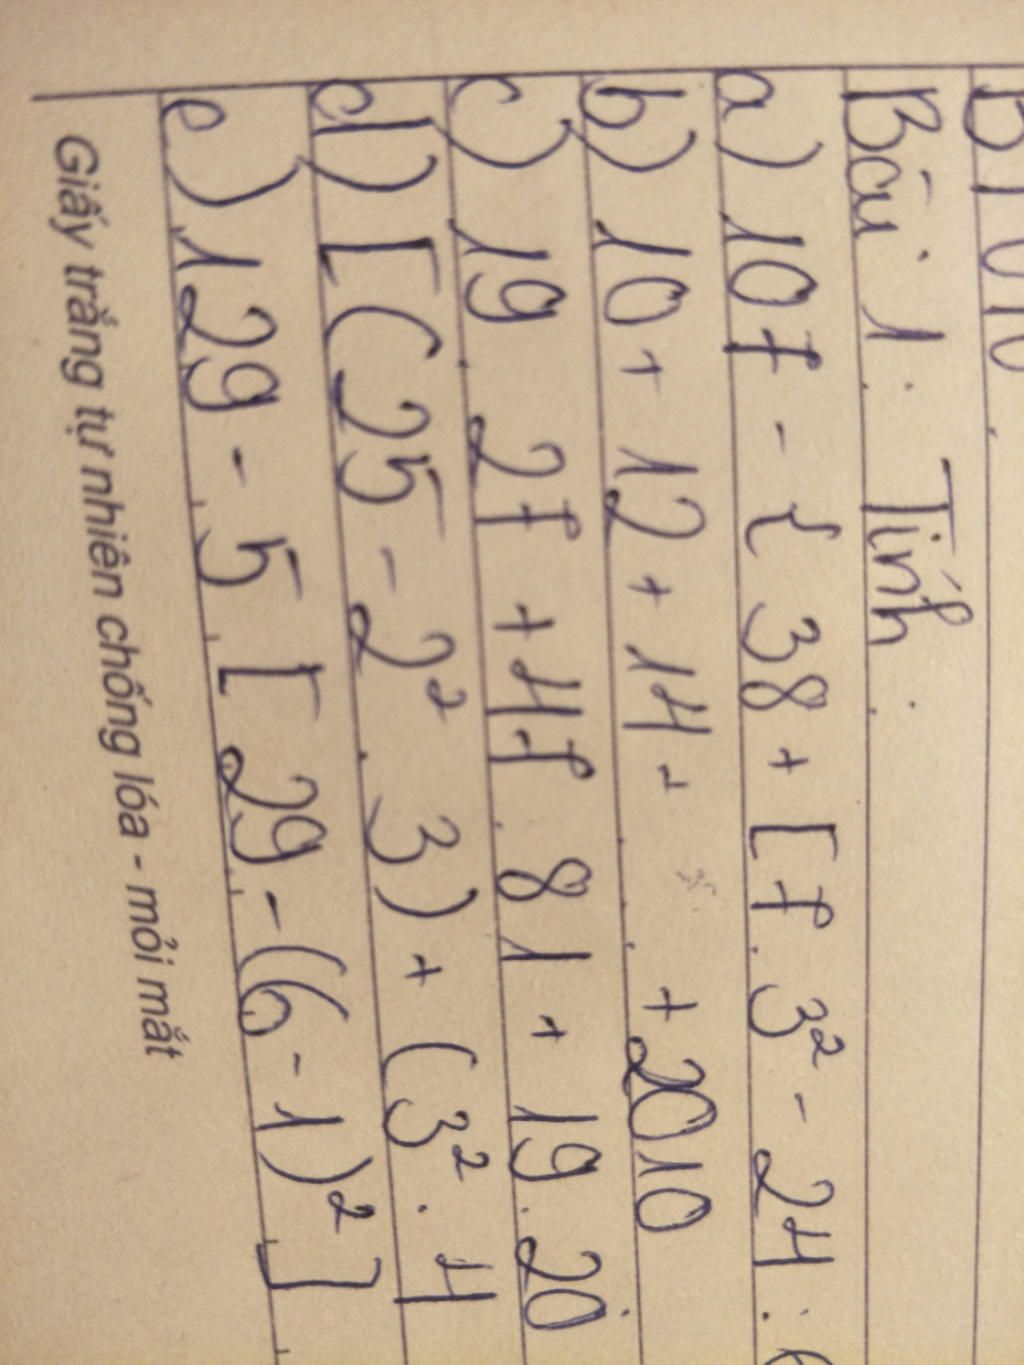 Bài 1. Tính.
a) 107 - { 38 + [ 7 . 3² - 24 : (
b) 10 + 12 + 14 + . . + 2010
c) 19 . 27 + 47 . 81 + 19 . 20
d) [ ( 25 - 2² . 3 ) + ( 3² . 4
e) 129 - 5 [ 29 - (6 - 1)² ]
Giấy trắng tự nhiên chống lóa - mỏi mắt